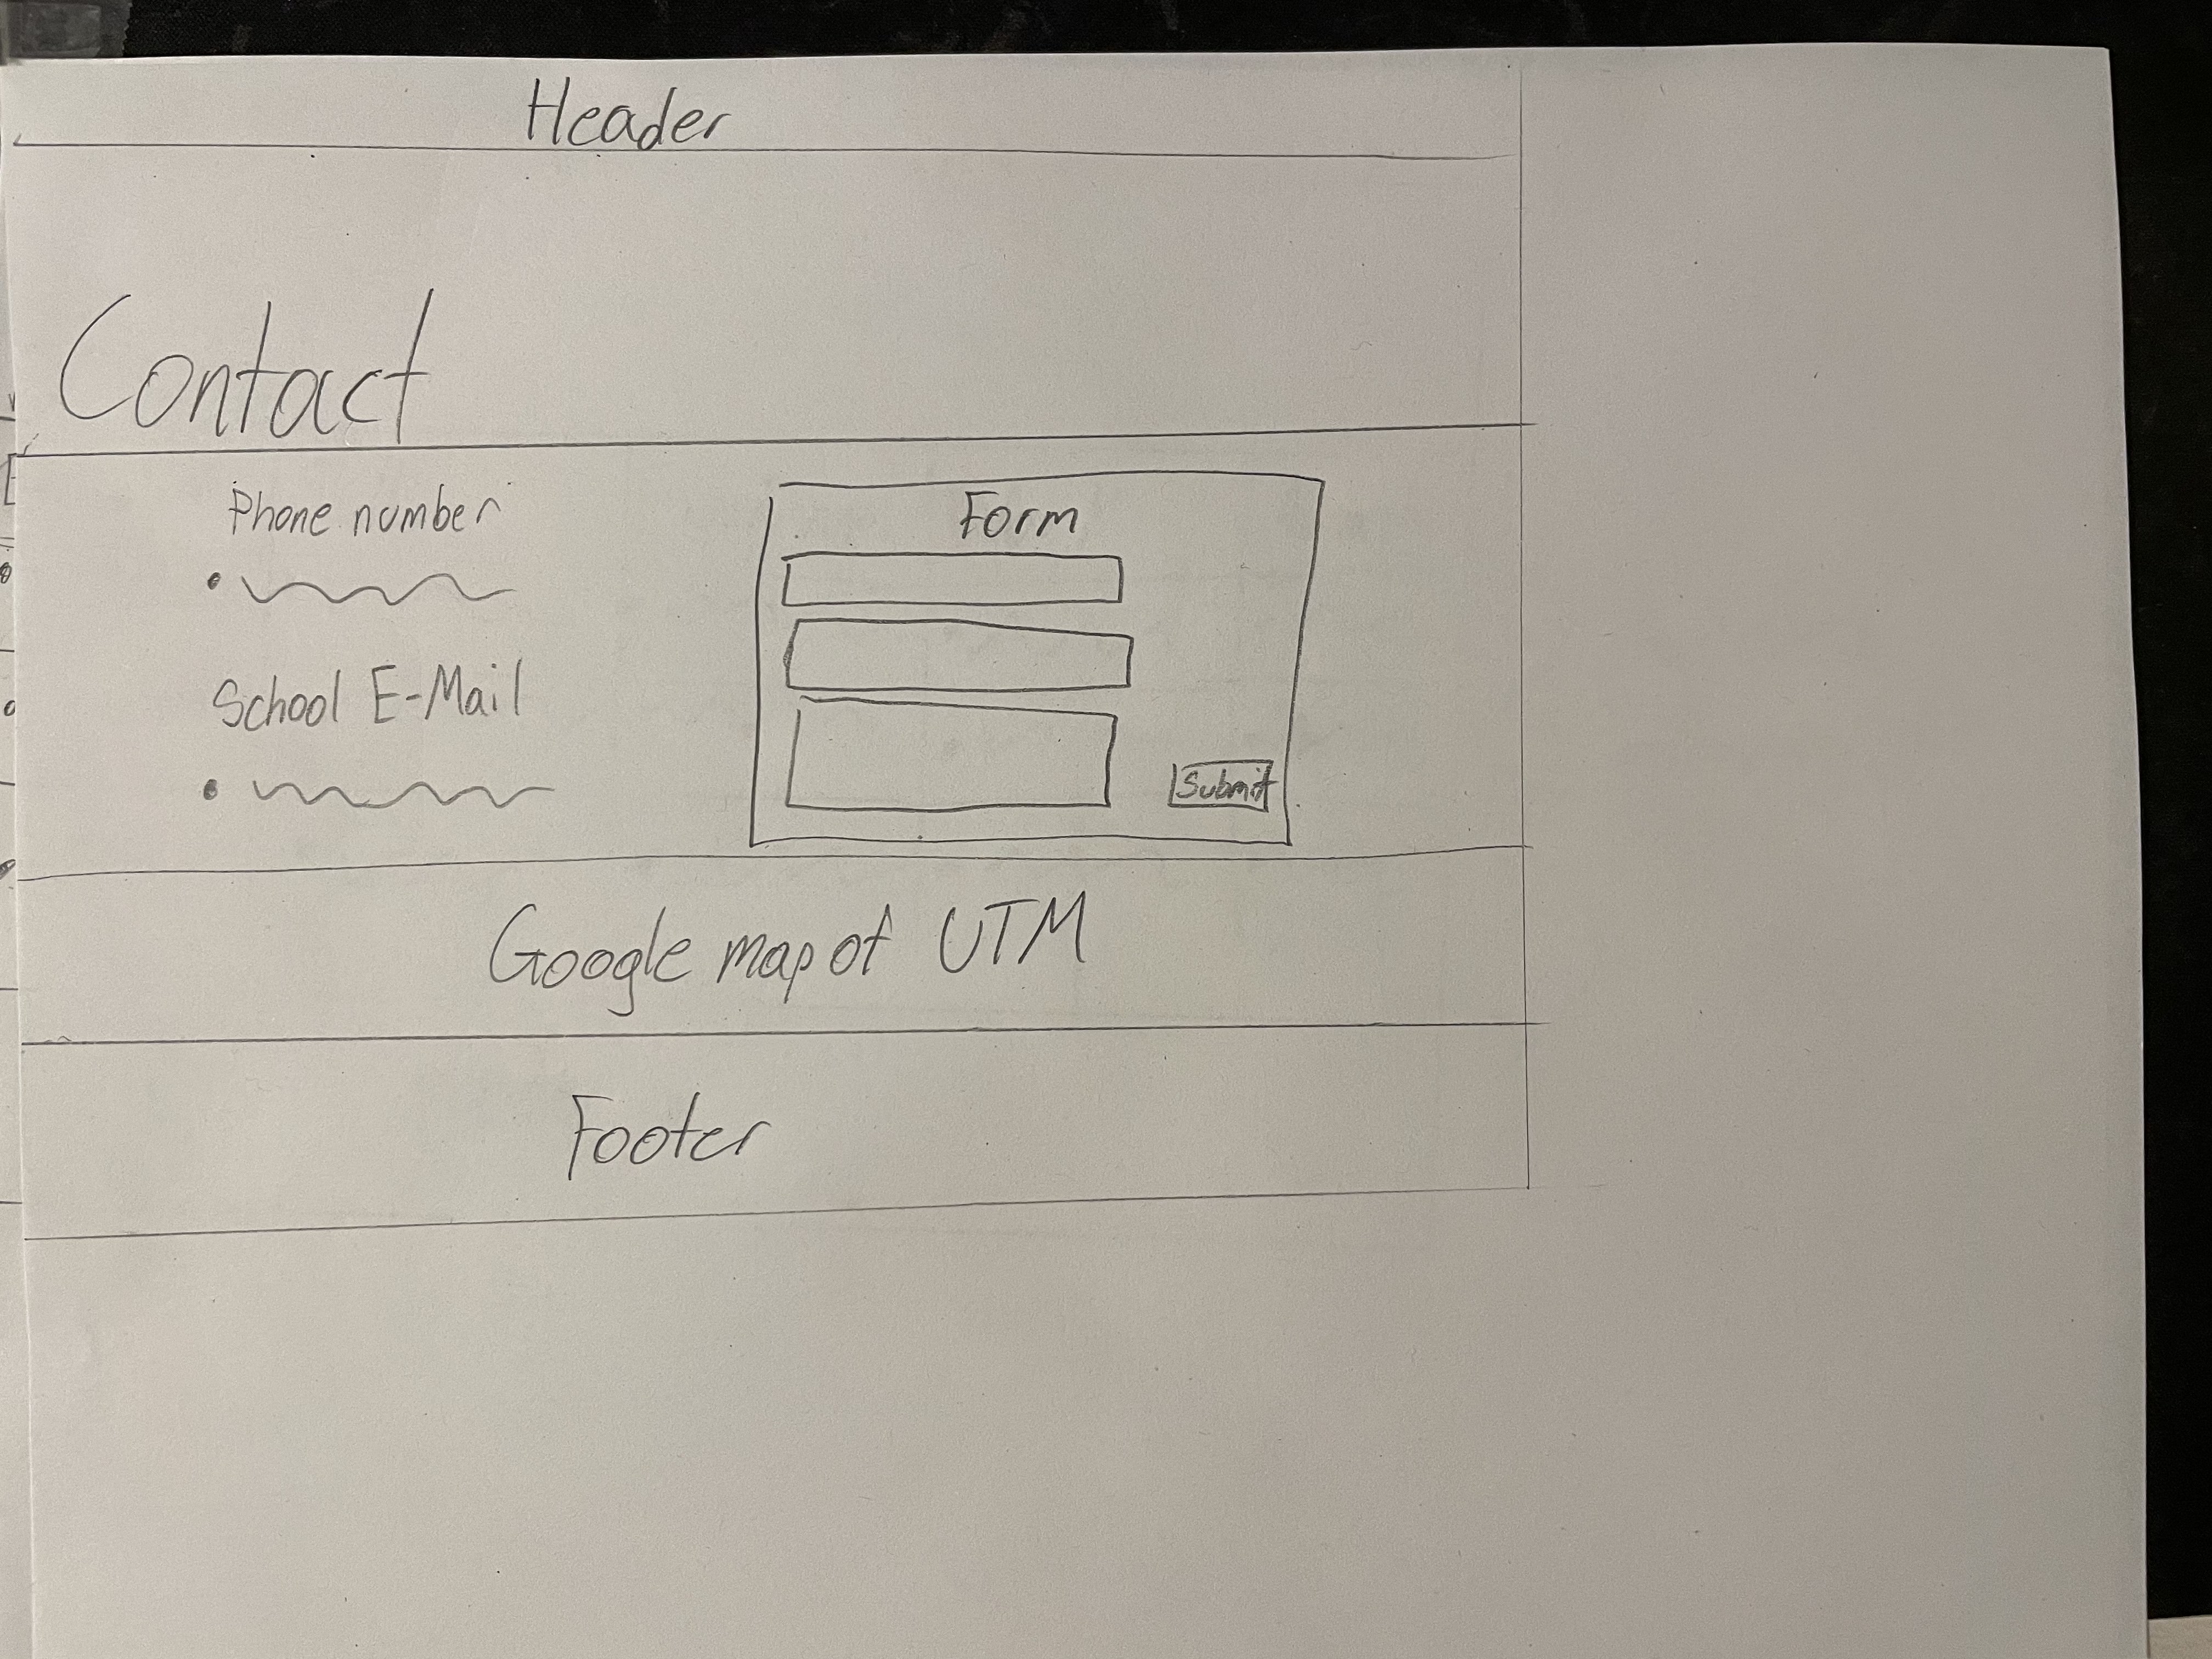 Header
Contact
Phone number
School E-Mail
Form
Submit
Google map of UTM
Footer